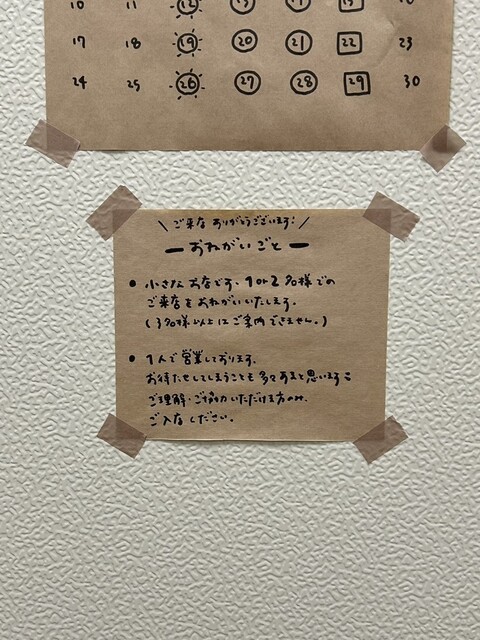 10 11 12 13 14 15 16
17 18 19 20 21 22 23
24 25 26 27 28 29 30
\ ご来店 ありがとうございます! /
ー おねがいごと ー
• 小さな お店です、1 or 2 名様での
ご来店をおねがいいたします。
(3名様以上はご案内できません。)
• 1人で営業しております。
お待たせしてしまうことも多々あると思います
ご理解・ご協力いただける方のみ、
ご入店ください。